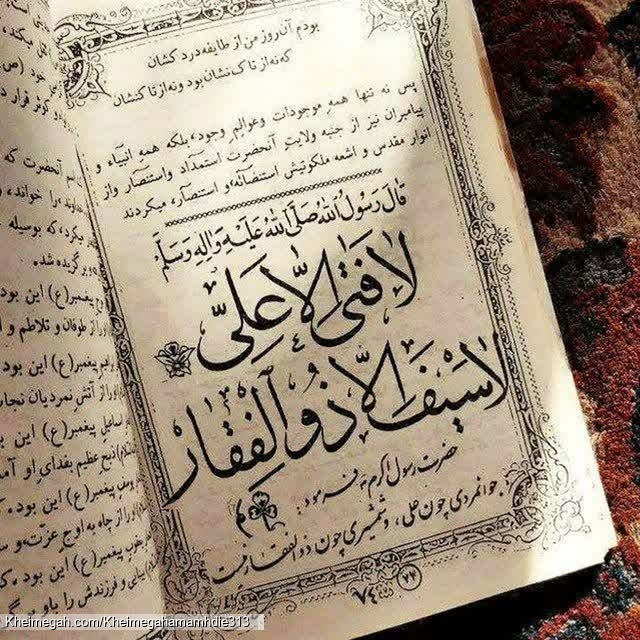 بودم آن روز من از طایفه دردکشان
که نه از تاک نشان بود و نه از تاکنشان
پس نه تنها همه موجودات وعوالم وجود، بلکه همه انبیاء و
پیامبران نیز از جنبه ولایت آنحضرت استمداد واستنصار واز
انوار مقدس و اشعه ملکوتیش استضائه،و استنصار، میکردند
قالَ رَسُولُ اللهِ صَلَّی اللهُ عَلَیْهِ وَالِهِ وَسَلَّم
لا فَتی اِلّا عَلِیّ
لا سَیْفَ اِلّا ذُو الْفِقارْ
حضرت رسول اکرم فرمود:
جوانمردی چون علی، و شمشیری چون ذوالفقار نیست
۷۴
خود (ص
و کوثر قرار د
آنحضرت که
را خواند،
میکرد،که بوسیله
برگزیده شده
پیغمبر(ع) این بود
را از طوفان و تلاطم و ا
پیغمبر(ع) این بود
را از آتش نمردیان نجات
اسماعیل پیغمبر(ع) این ب
ذبح عظیم بفدای او آمد
یوسف پیغمبر(ع) این بود
او را از چاه به اوج عزت و س
یعقوب پیغمبر(ع) این بود
این بود ،که
بینایی و فرزندش را باو بر گ
Kheimegah.com/Kheimegahamamhdie313